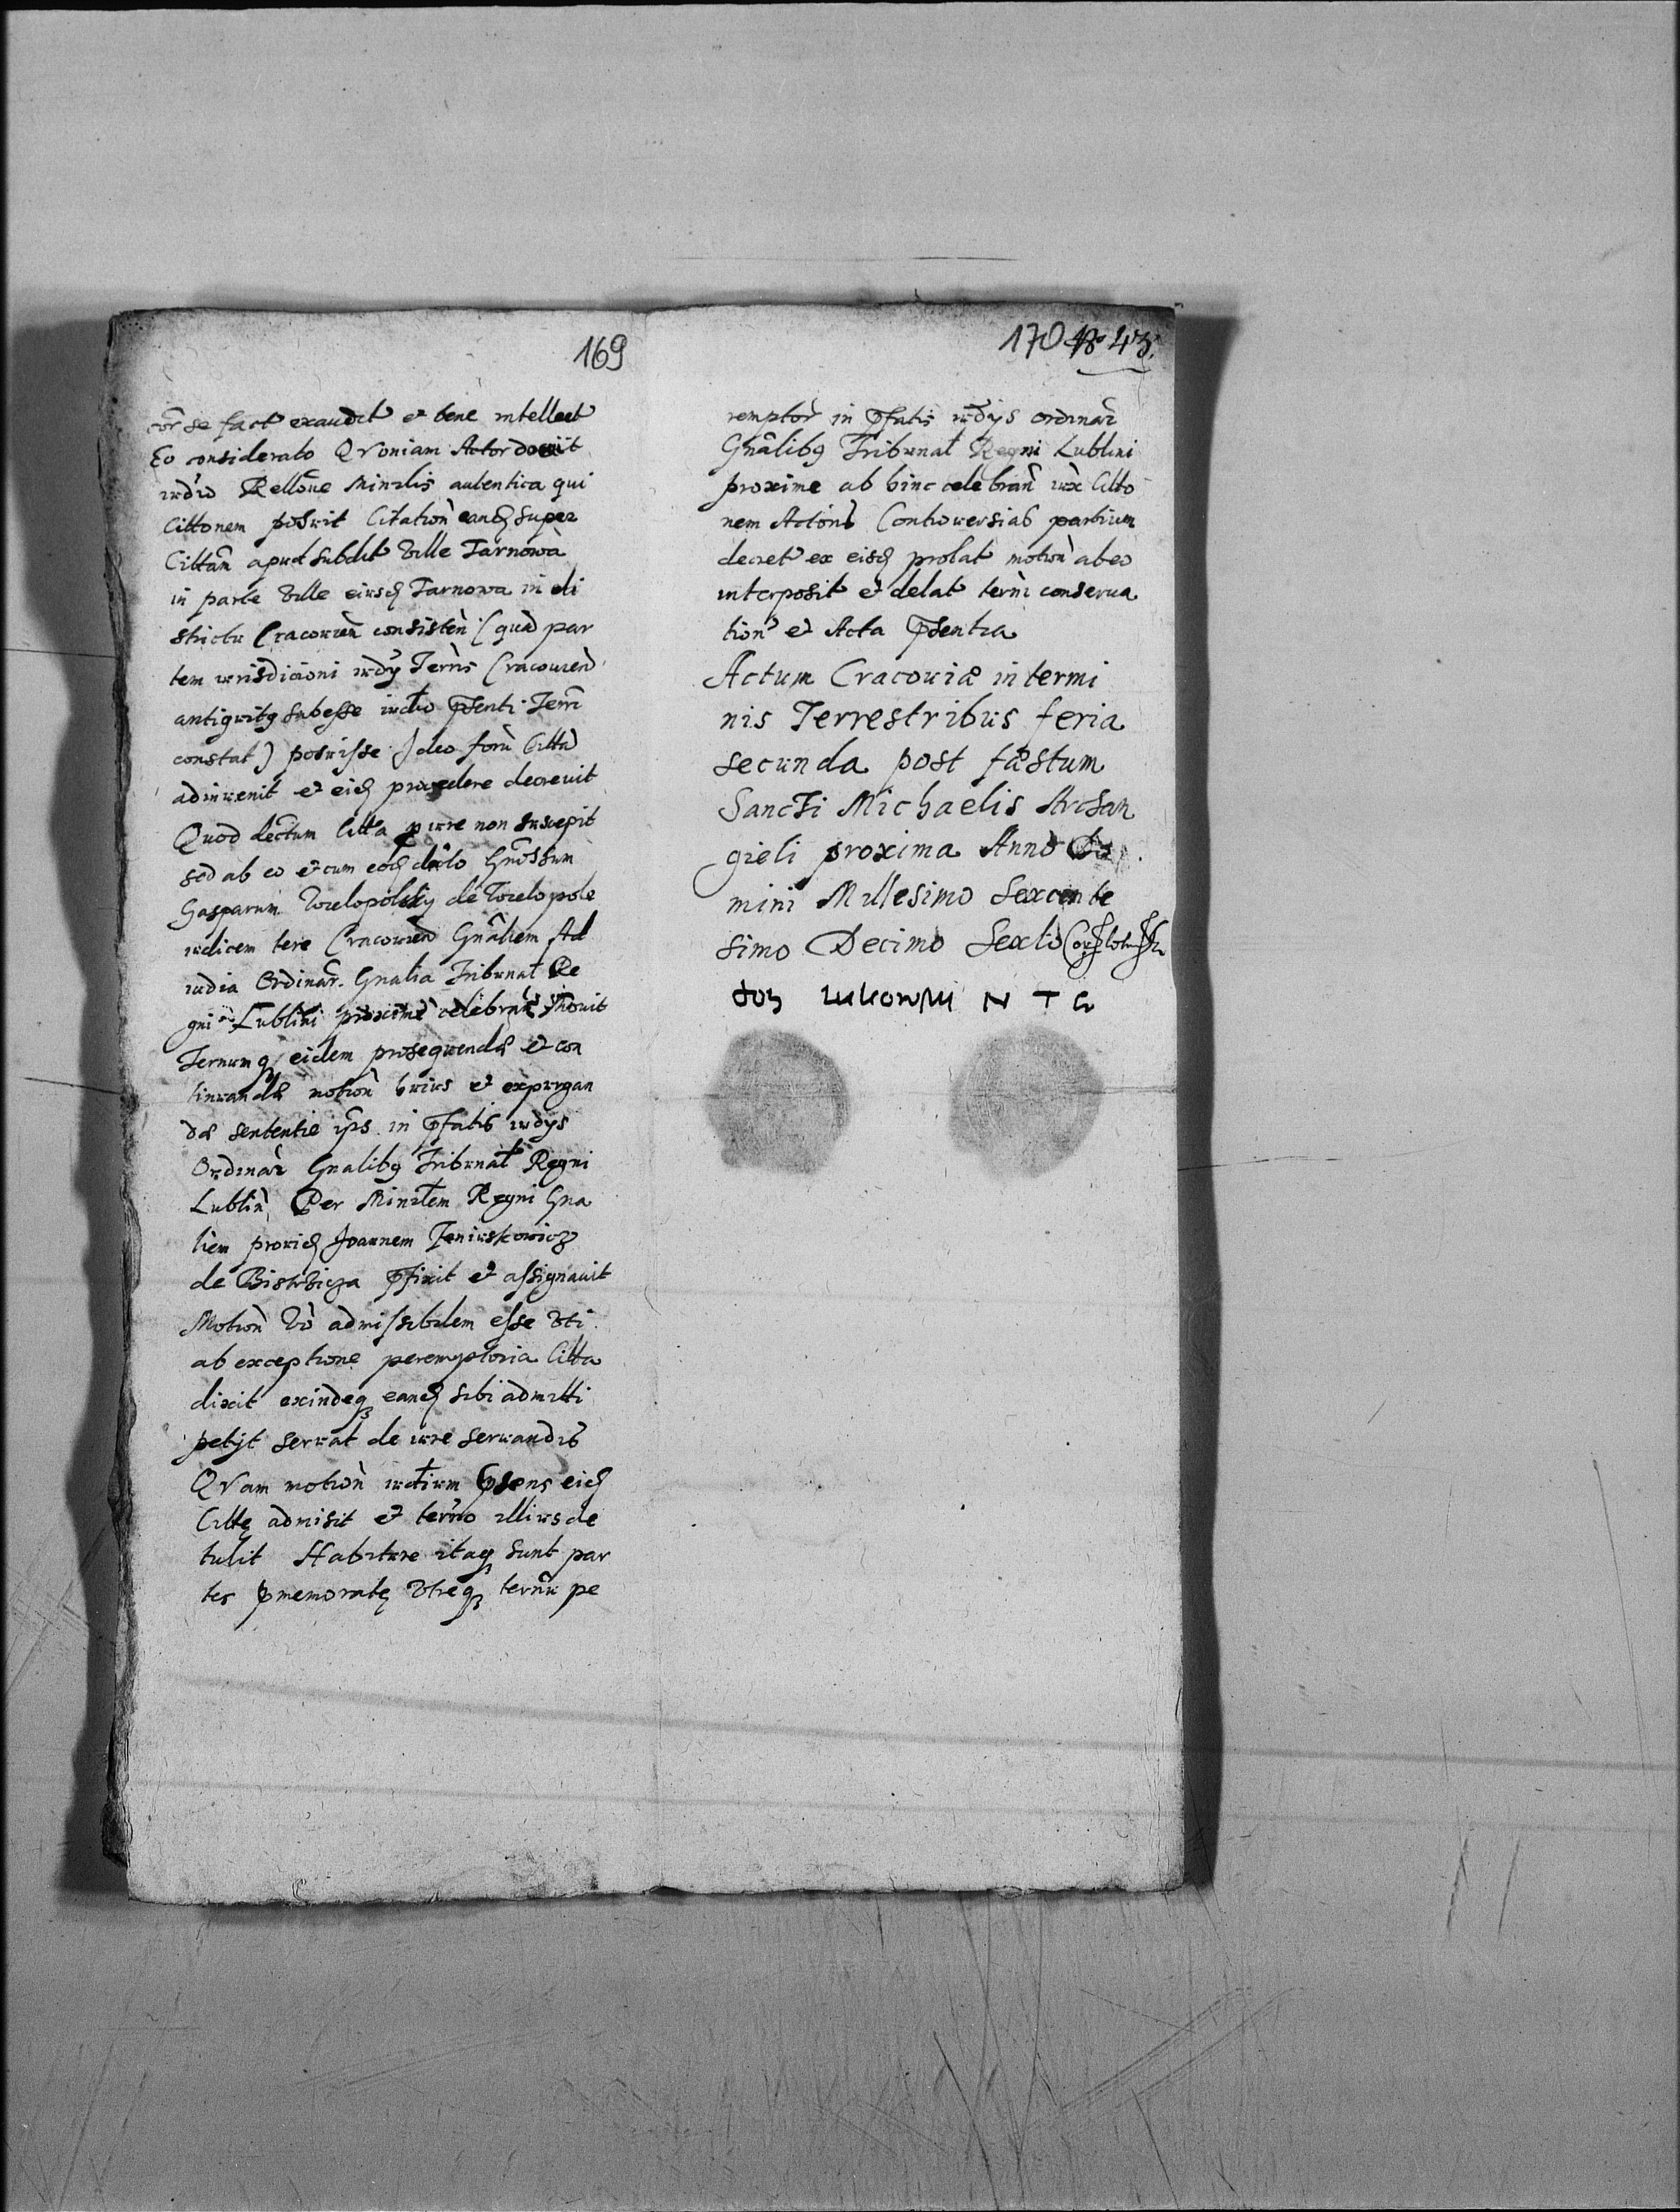 169
cor̃ se fact exaudit et bene intellect
Eo considerato Qvoniam Actor docuit
iudio Rellõne Minrlis autentica qui
Cittonem posuit Citation̄ eand super
Cittam̃ apud subdit Ville Tarnowa
in parte Ville eiusd Tarnowa in di
strictu Cracouien consisten (quã par
tem iurisdicioni iudy Terris Cracouien
antiquitq subesse iudio pñsenti Terri
constat) posuisse Ideo forũ Citta
adinuenit et eid procedere decreuit
Quod decretum Citta pure non suscepit
sed ab eo et cum eod Gnõssum
Gasparum Wielopolsky de Wielopole
iudicem tere Cracouien Gnãliem Ad
iudia Ordinar. Gnalia Tribunat Re
gni Lublini proxime celebran mouit
Ternumq eidem prosequendæ et con
tinuandæ motion̄ huius et expurgan
dæ sententie ips in pfatis iudys
Ordinar Gnalibq Tribunat Regni
Lublin Per Minrlem Regni Gna
liem prouid Joannem Janiuskowicz
de Bistrzicza pfixit et assignauit
Motion̄ Vò admissibilem esse Vti
ab exceptione peremptoria Citta
dixit exindeq eand sibi admitti
petijt seruat de iure seruandis
Qvam motion̄ iudium psens eid
Citte admisit et terno illius de
tulit Habiture itaq sunt par
tes pmemorate Vtreq ternũ pe
170 43.
remptor in pfatis iudys ordinar
Gnãlibq Tribunat Regni Lublini
proxime ab hinc celebran iux Citto
nem Actoris Controuersias partium
decret ex eisd prolat motion̄ ab eo
interposit et delat terni conserua
tion et Acta psentia
Actum Cracouiæ in termi
nis Terrestribus feria
secunda post fæstum
Sancti Michaelis Archan
gieli proxima Anno Do
mini Millesimo Sexcente
simo Decimo Sexto
Lukowski N T C